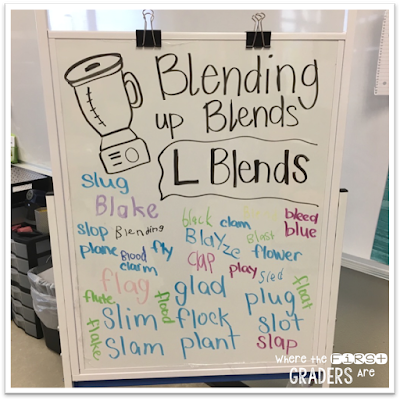 Blending
up Blends
L Blends
slug
Blake
black clam bleed
slop Blending Blayze Blast blue
plane Blood fly clap flower
clarm play sled
flag glad float
flute flood plug
Slim flock slot
flake Slam plant slap
Where the FIRST
GRADERS Are